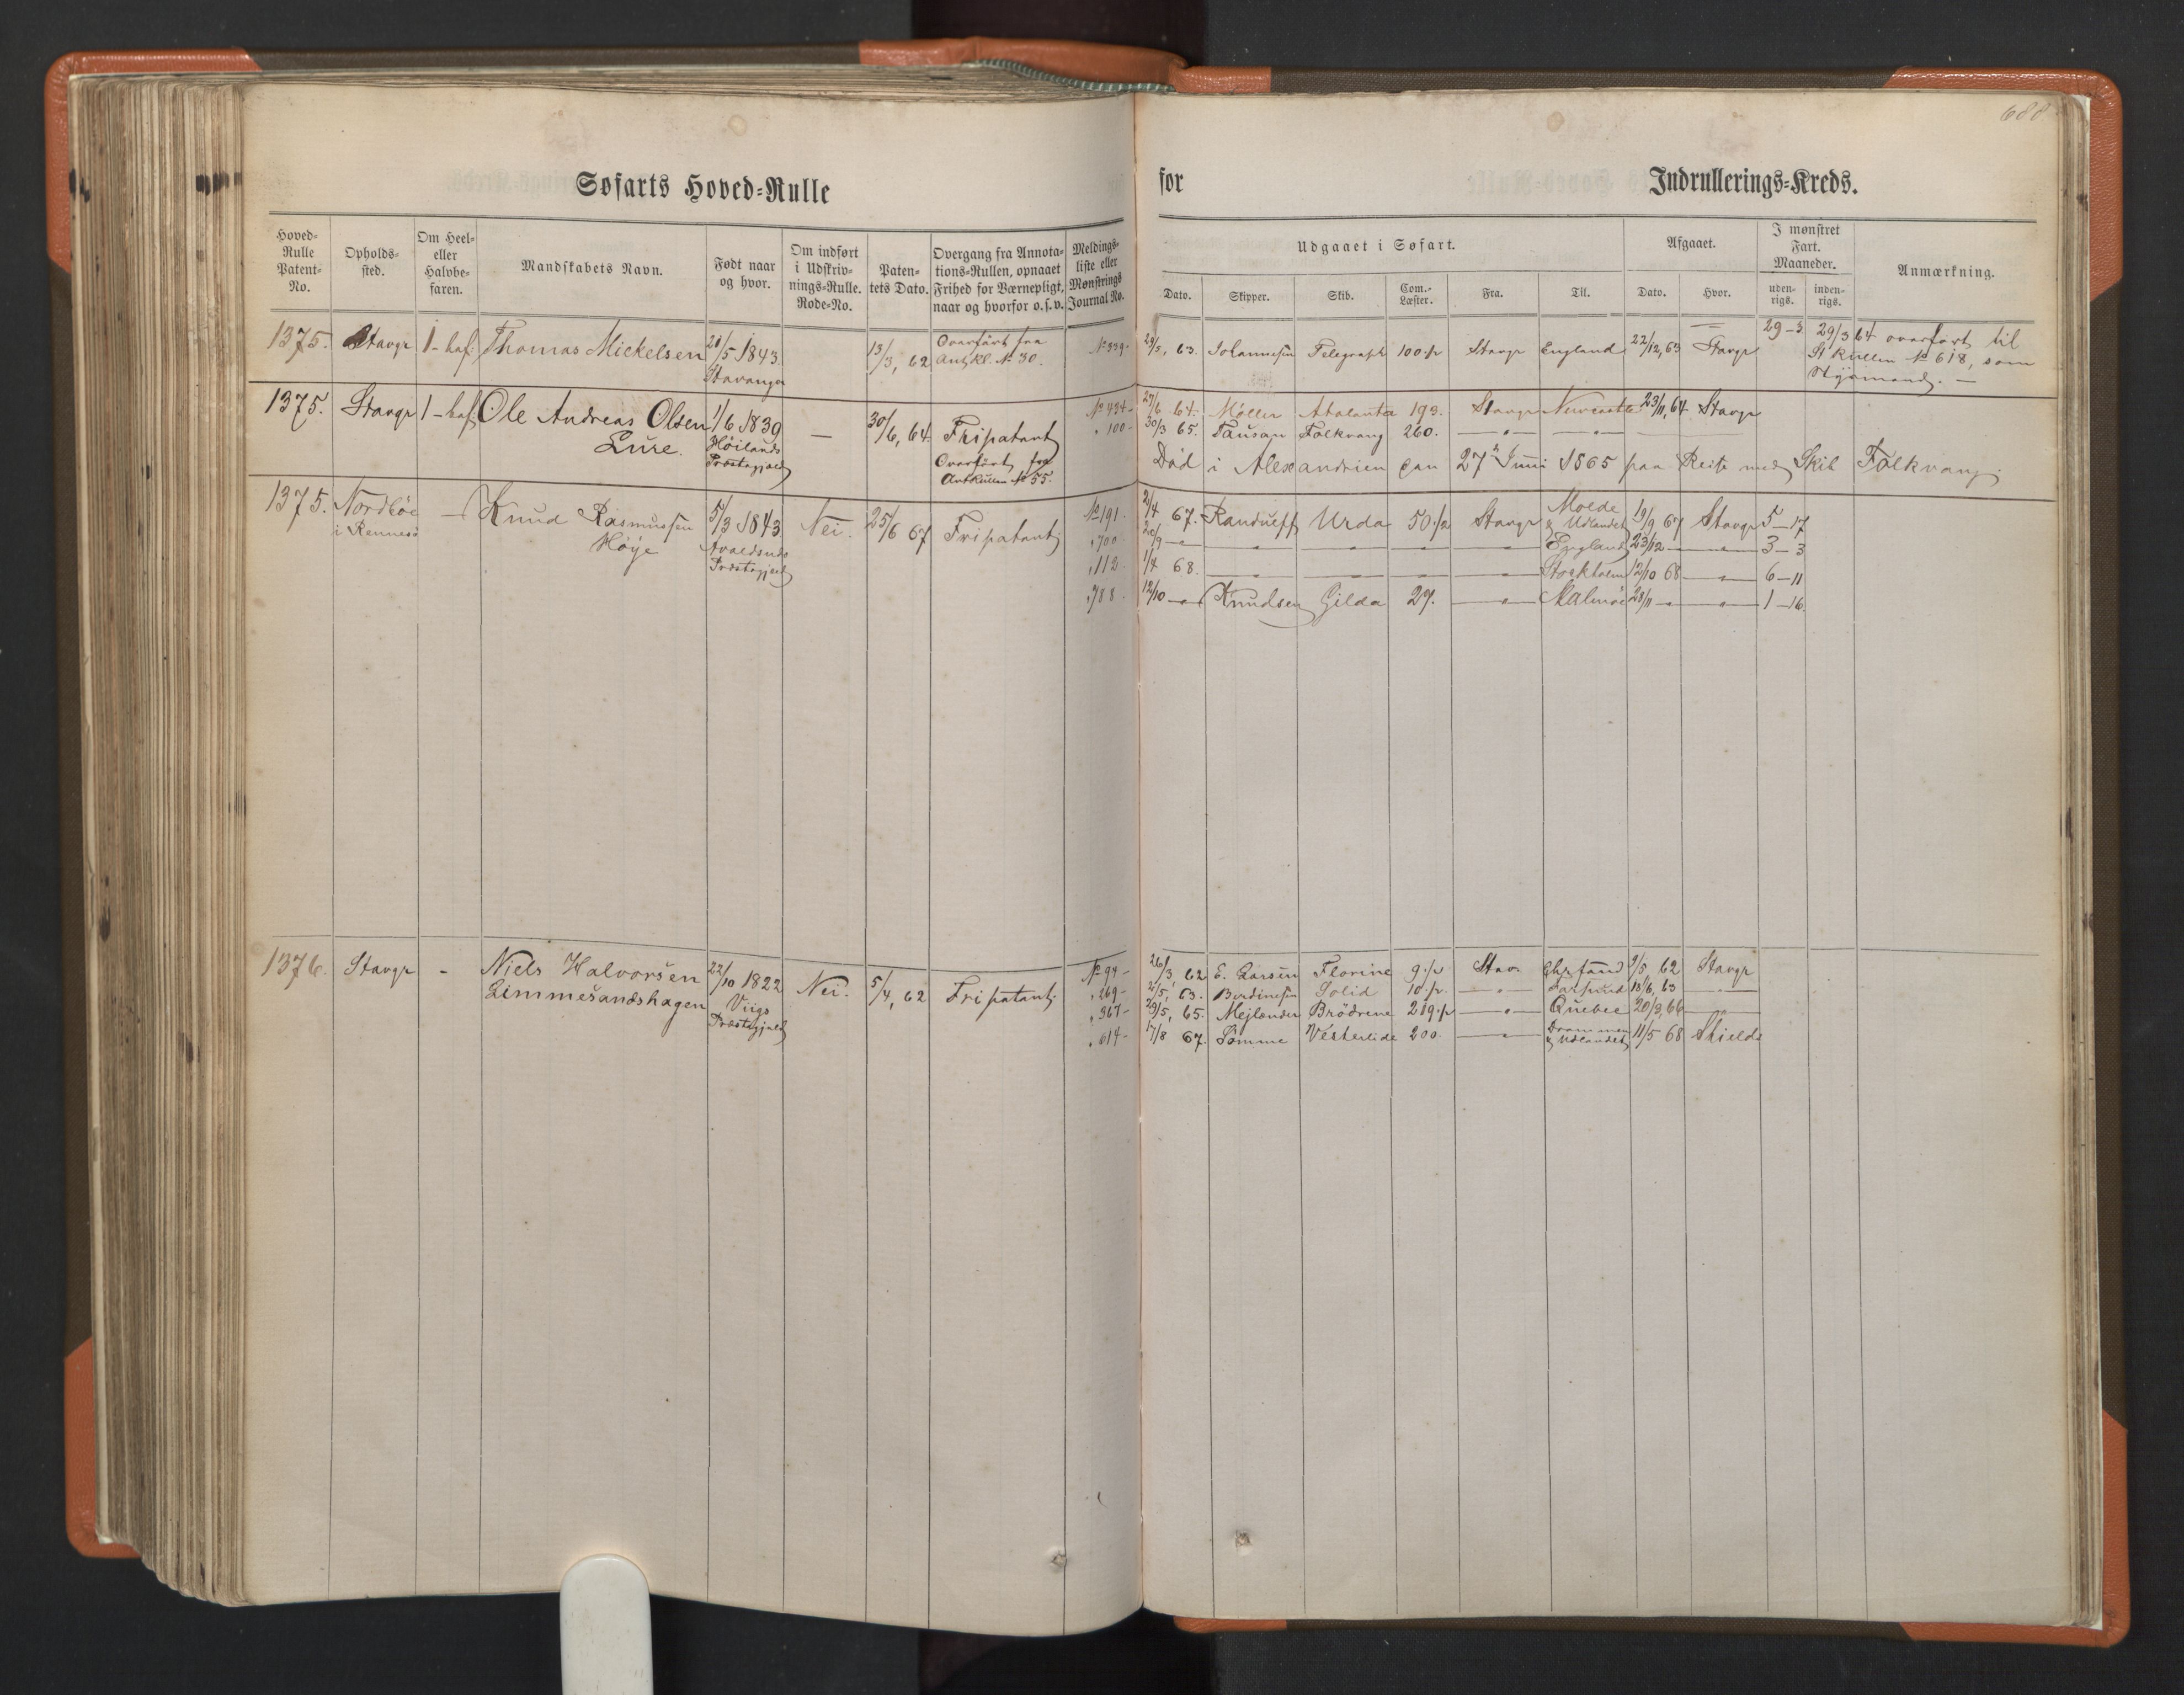 688
Søfarts Hoved-Rulle for Indrullerings-Kreds.
Hoved-Rulle Patent-No. Opholds-sted. Om Heel- eller Halvbe-faren. Mandskabets Navn. Født naar og hvor. Om indført i Udskriv-nings-Rulle. Rode-No. Paten-tets Dato. Overgang fra Annota-tions-Rullen, opnaaet Frihed for Værnepligt, naar og hvorfor o.s.v. Meldings-liste eller Mønstrings Journal No.
Udgaaet i Søfart. Afgaaet. I mønstret Fart. Maaneder. Anmærkning.
Dato. Skipper. Skib. Com.-Læster. Fra. Til. Dato. Hvor. uden-rigs. inden-rigs.
1375. Stavgr 1 - haf. Thomas Mickelsen 20/5 1843 Stavanger 13/3, 62 Overført fra Ant. Rl. No 30. No 339- 29/5, 63. Johannesen Telegraph 100 1/2 Stavgr England 22/12, 63 Stavgr 29-3
29/3 64 overført til
St Rullen No 618, som
Styrmand. —
1375. Stavgr 1 - haf. Ole Andreas Olsen 1/6 1839 — 30/6, 64 Fripatent No 434- 27/6 64. Møller Atalanta 193. Stavgr Newcastle 23/11, 64 Stavgr
Lure. Høilands Præstegjæld Overført fra AntRullen No 55. " 100- 30/3 65. Tausan Folkvang 260. — " — — " —
Død i Alexandrien den 27 Juni 1865 paa Reise med Skib Folkvang.
1375. Nordbøe — Knud Rasmussen 5/3 1843 Nei. 25/6 67 Fripatent. No 191. 2/4 67. Randueff Urda 50 1/2 Stavgr Molde & Udlandet 19/9 67 Stavgr 5-17
i Rennesø Høye Avaldsnæs Præstegjæld " 700. 20/9 — " — — " — — " — — " — — " — England 23/12 — — " — 3-3
" 112. 1/4 68. — " — — " — — " — — " — Stockholm 12/10 68 — " — 6-11
" 788. 12/10 — " — Knudsen Gilda 29. — " — Malmöe 28/11 — " — — " — 1-16.
1376. Stavgr - Niels Halvorsen 22/10 1822 Nei. 5/4, 62 Fripatent. No 94- 26/3, 62 E. Larsen Florine 9 1/2 Stav. Chrsand 9/5 62 Stavgr
Limmesandshagen Viigs Præstegjæld " 269- 2/5, 63. Berdinesen Solid 10 1/2. — " — 18/6, 63 — " —
" 367- 29/5, 65. Mejlænder Brødrene 219 1/2 — " — Quebec 20/3, 66 — " —
" 614- 17/8 67. Sømme Vesterlide 200. — " — Drammen & Udlandet 11/5 68 Shields